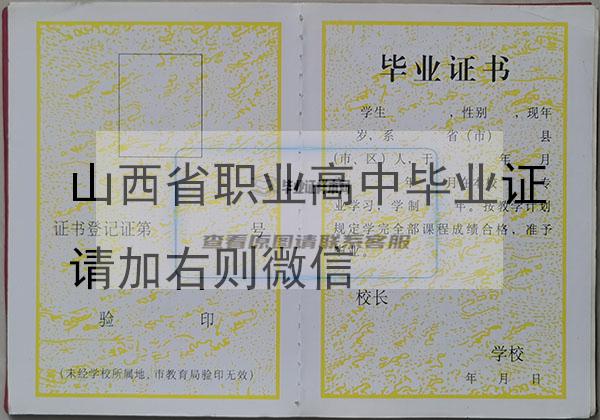 证书登记证第
号
验 印
(未经学校所属地,市教育局验印无效)
毕业证书
学生 ,性别 ,现年
岁,系 省(市) 县
(市、区)人,于 年 月
业学习,学制 年。按教学计划
规定学完全部课程成绩合格,准予
校长
学校
年 月 日
山西省职业高中毕业证
请加右则微信
查看原图请联系客服